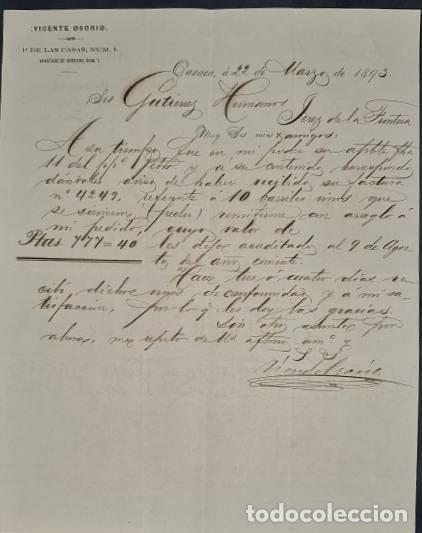 VICENTE OSORIO.
1ª DE LAS CASAS, NUM. 1.
APARTADO DE CORREOS, NUM. 1
Oaxaca, á 22 de Marzo de 1893.
Srs Gutierrez Hermanos
Jerez de la Frontera
Muy Srs mios y amigos:
A su tiempo en mi poder su aptble fha
11 del ppº y á su contenido correspondo
dándoles aviso de haber recibido su factura
nº 4249, referente á 10 barriles vinos que
se sirvieron remitirme con arreglo á
mi pedido, cuyo valor de
Ptas. 777=40 les dejo acreditado al 9 de Agos-
to del año corriente.
Hace tres ó cuatro dias re-
cibí, dichos vinos de conformidad y á mi sa-
tisfacción, por lo q. les doy las gracias.
Sin otro asunto por
ahora, me repito de Us. aftmo. amº. y
S. S.
Vicente Osorio
todocoleccion